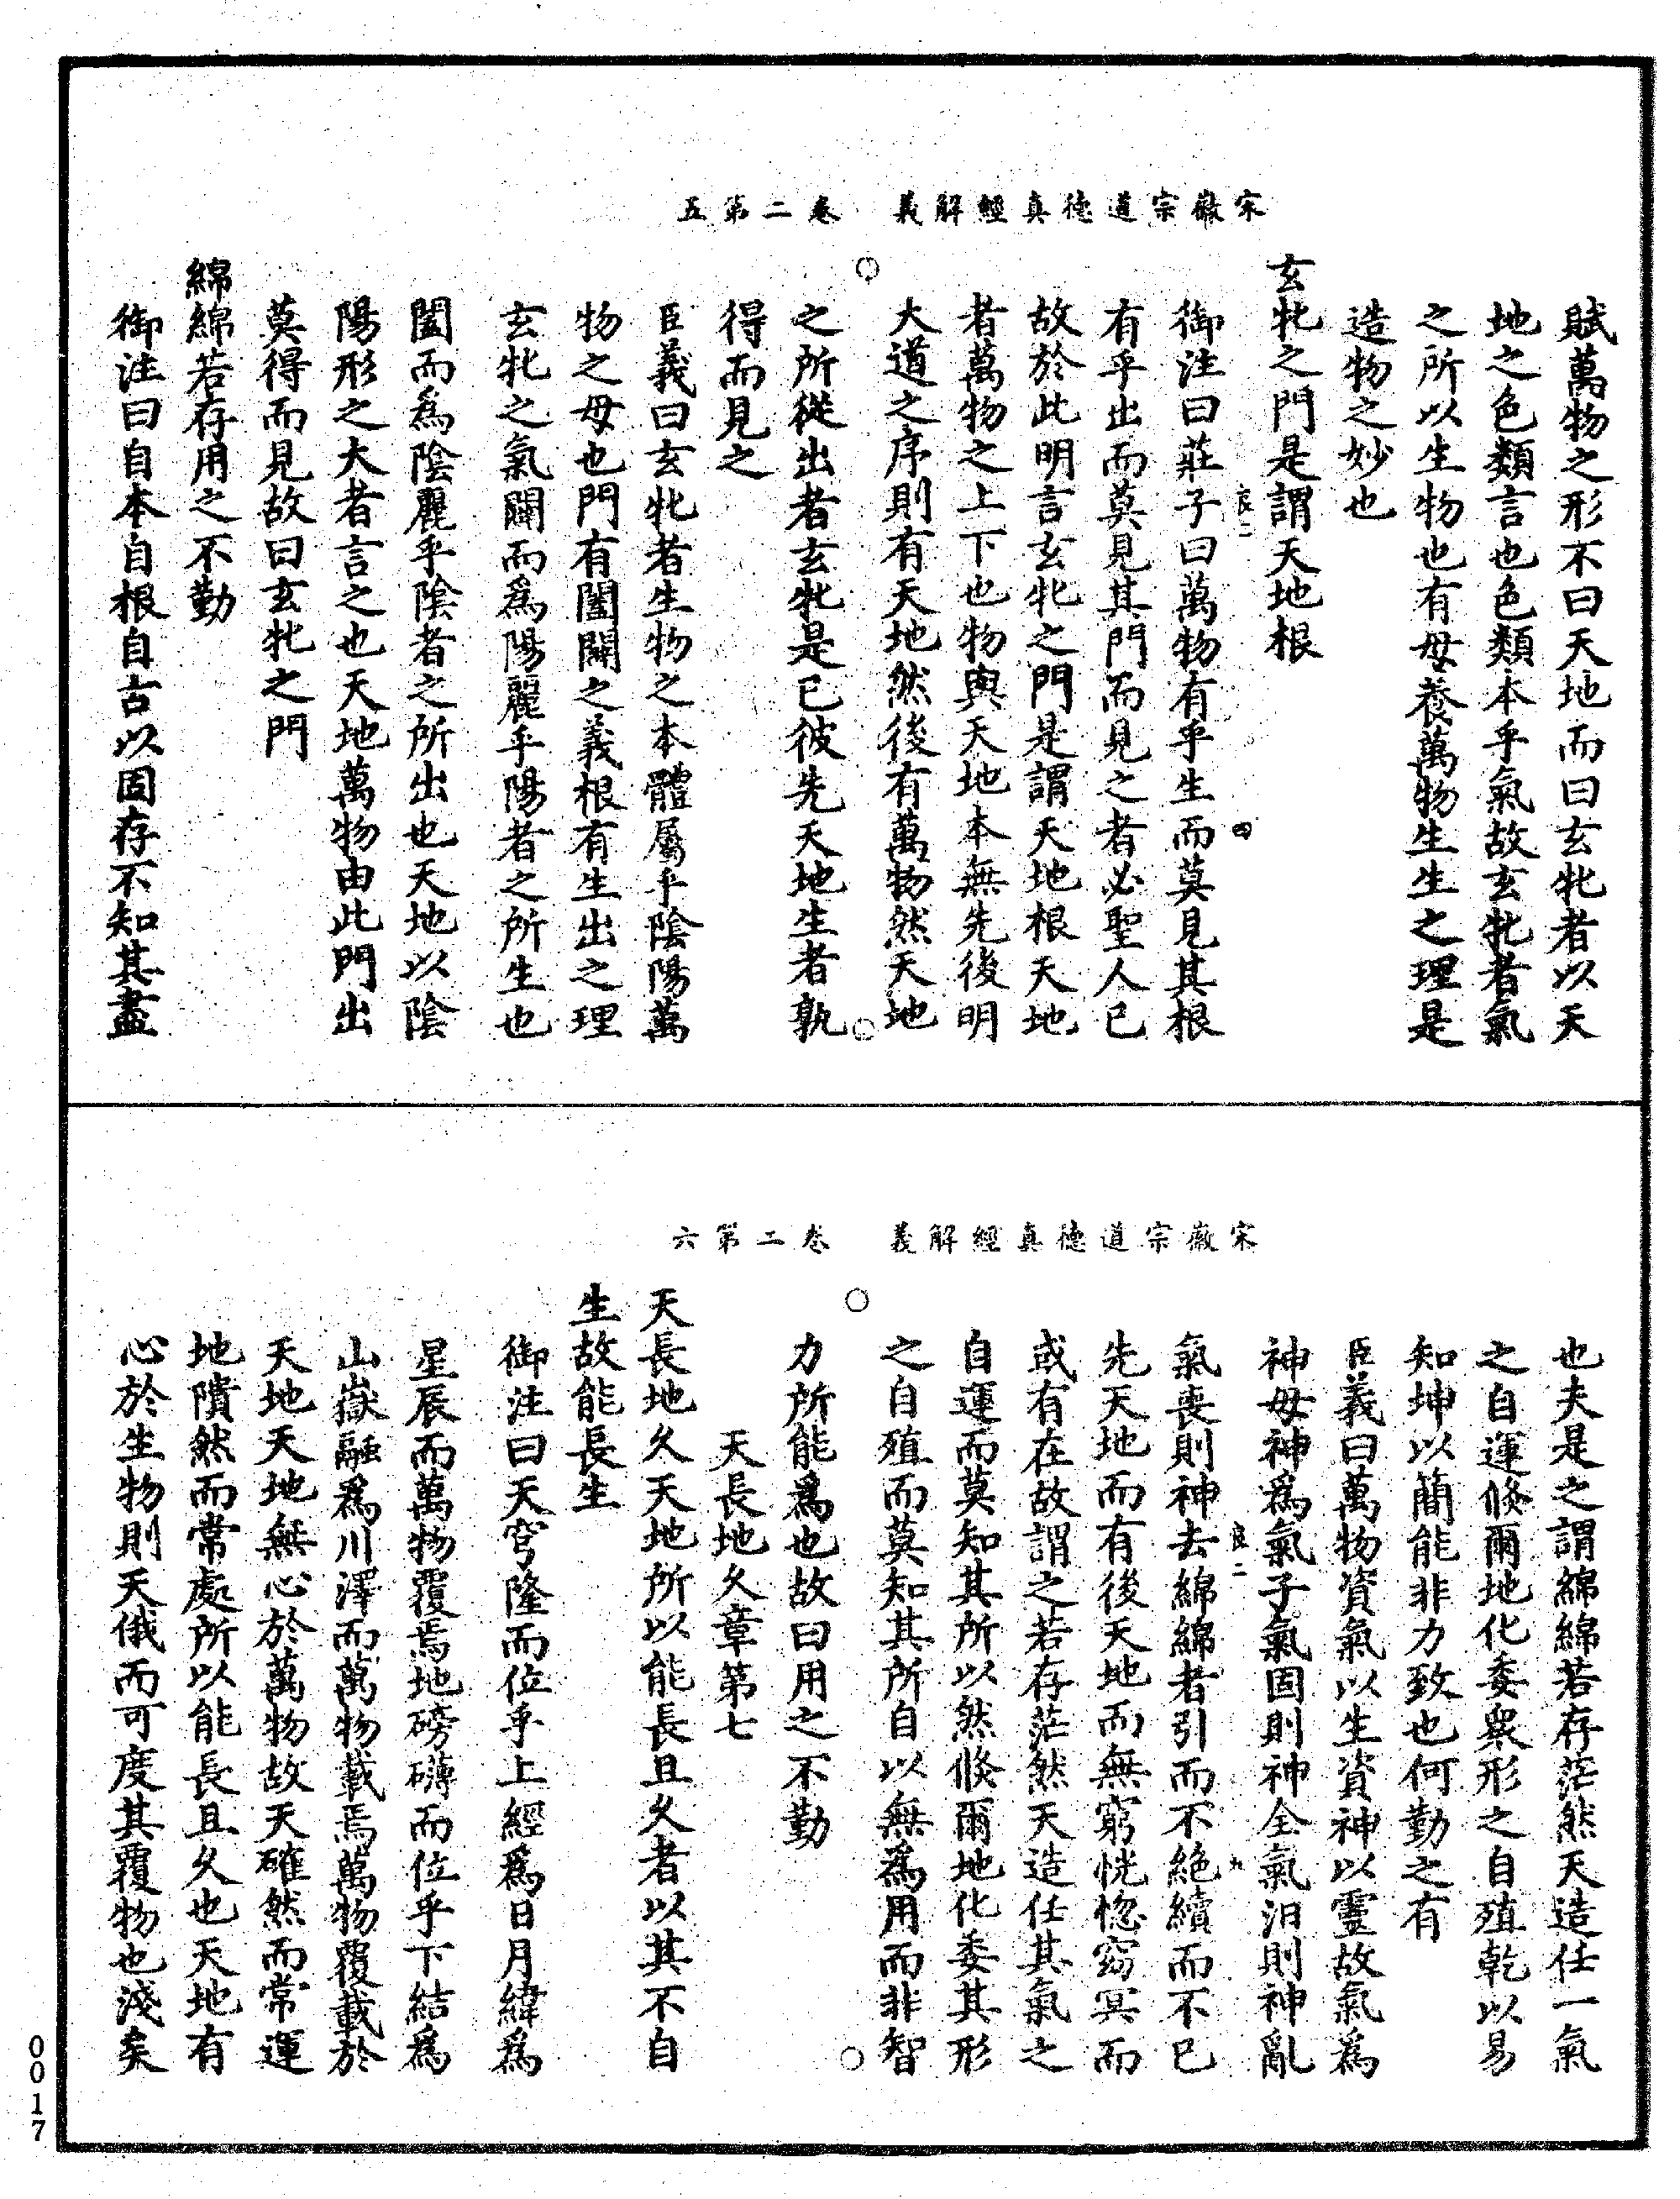 宋徽宗道德真經解義　卷二第五
賦萬物之形不曰天地而曰玄牝者以天
地之色類言也色類本乎氣故玄牝者氣
之所以生物也有母養萬物生生之理是
造物之妙也
玄牝之門是謂天地根
良二
四
御注曰莊子曰萬物有乎生而莫見其根
有乎出而莫見其門而見之者必聖人已
故於此明言玄牝之門是謂天地根天地
者萬物之上下也物與天地本無先後明
大道之序則有天地然後有萬物然天地
之所從出者玄牝是已彼先天地生者孰
得而見之
臣義曰玄牝者生物之本體屬乎陰陽萬
物之母也門有闔闢之義根有生出之理
玄牝之氣闢而爲陽麗乎陽者之所生也
闔而爲陰麗乎陰者之所出也天地以陰
陽形之大者言之也天地萬物由此門出
莫得而見故曰玄牝之門
綿綿若存用之不勤
御注曰自本自根自古以固存不知其盡
宋徽宗道德真經解義　卷二第六
也夫是之謂綿綿若存茫然天造任一氣
之自運倏爾地化委衆形之自殖乾以易
知坤以簡能非力致也何勤之有
臣義曰萬物資氣以生資神以靈故氣爲
神母神爲氣子氣固則神全氣汨則神亂
良二
九
氣喪則神去綿綿者引而不絶續而不已
先天地而有後天地而無窮恍惚窈冥而
或有在故謂之若存茫然天造任其氣之
自運而莫知其所以然倏爾地化委其形
之自殖而莫知其所自以無爲用而非智
力所能爲也故曰用之不勤
天長地久章第七
天長地久天地所以能長且久者以其不自
生故能長生
御注曰天穹隆而位乎上經爲日月緯爲
星辰而萬物覆焉地磅礴而位乎下結爲
山嶽融爲川澤而萬物載焉萬物覆載於
天地天地無心於萬物故天確然而常運
地隤然而常處所以能長且久也天地有
心於生物則天俄而可度其覆物也淺矣
0017